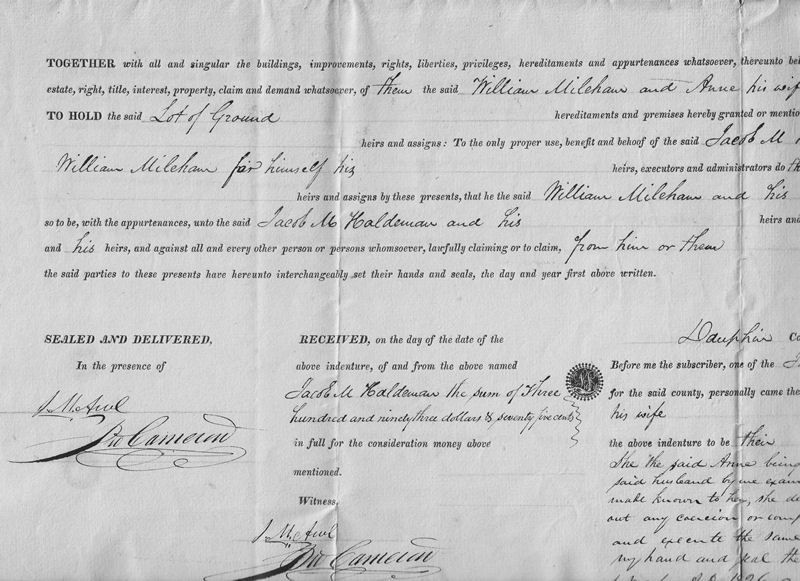 TOGETHER with all and singular the buildings, improvements, rights, liberties, privileges, hereditaments and appurtenances whatsoever, thereunto
estate, right, title, interest, property, claim and demand whatsoever, of them the said William Mileham and Anne his wife
TO HOLD the said Lot of Ground hereditaments and premises hereby granted or
heirs and assigns: To the only proper use, benefit and behoof of the said Jacob M
William Mileham for himself his heirs, executors and administrators do
heirs and assigns by these presents, that he the said William Mileham and his
so to be, with the appurtenances, unto the said Jacob M Haldeman and his heirs and
and his heirs, and against all and every other person or persons whomsoever, lawfully claiming or to claim, from him or them
the said parties to these presents have hereunto interchangeably set their hands and seals, the day and year first above written.
SEALED AND DELIVERED,
In the presence of
Cameron
RECEIVED, on the day of the date of the
above indenture, of and from the above named
Jacob M Haldeman the sum of Three
hundred and ninety three dollars & seventy five cents
in full for the consideration money above
mentioned.
Witness,
Cameron
Dauphin
Before me the subscriber, one of the
for the said county, personally came the
his wife
the above indenture to be their
She the said Anne being
said husband by me
make known to her, she
out any coercion or
and execute the same
my hand and seal the